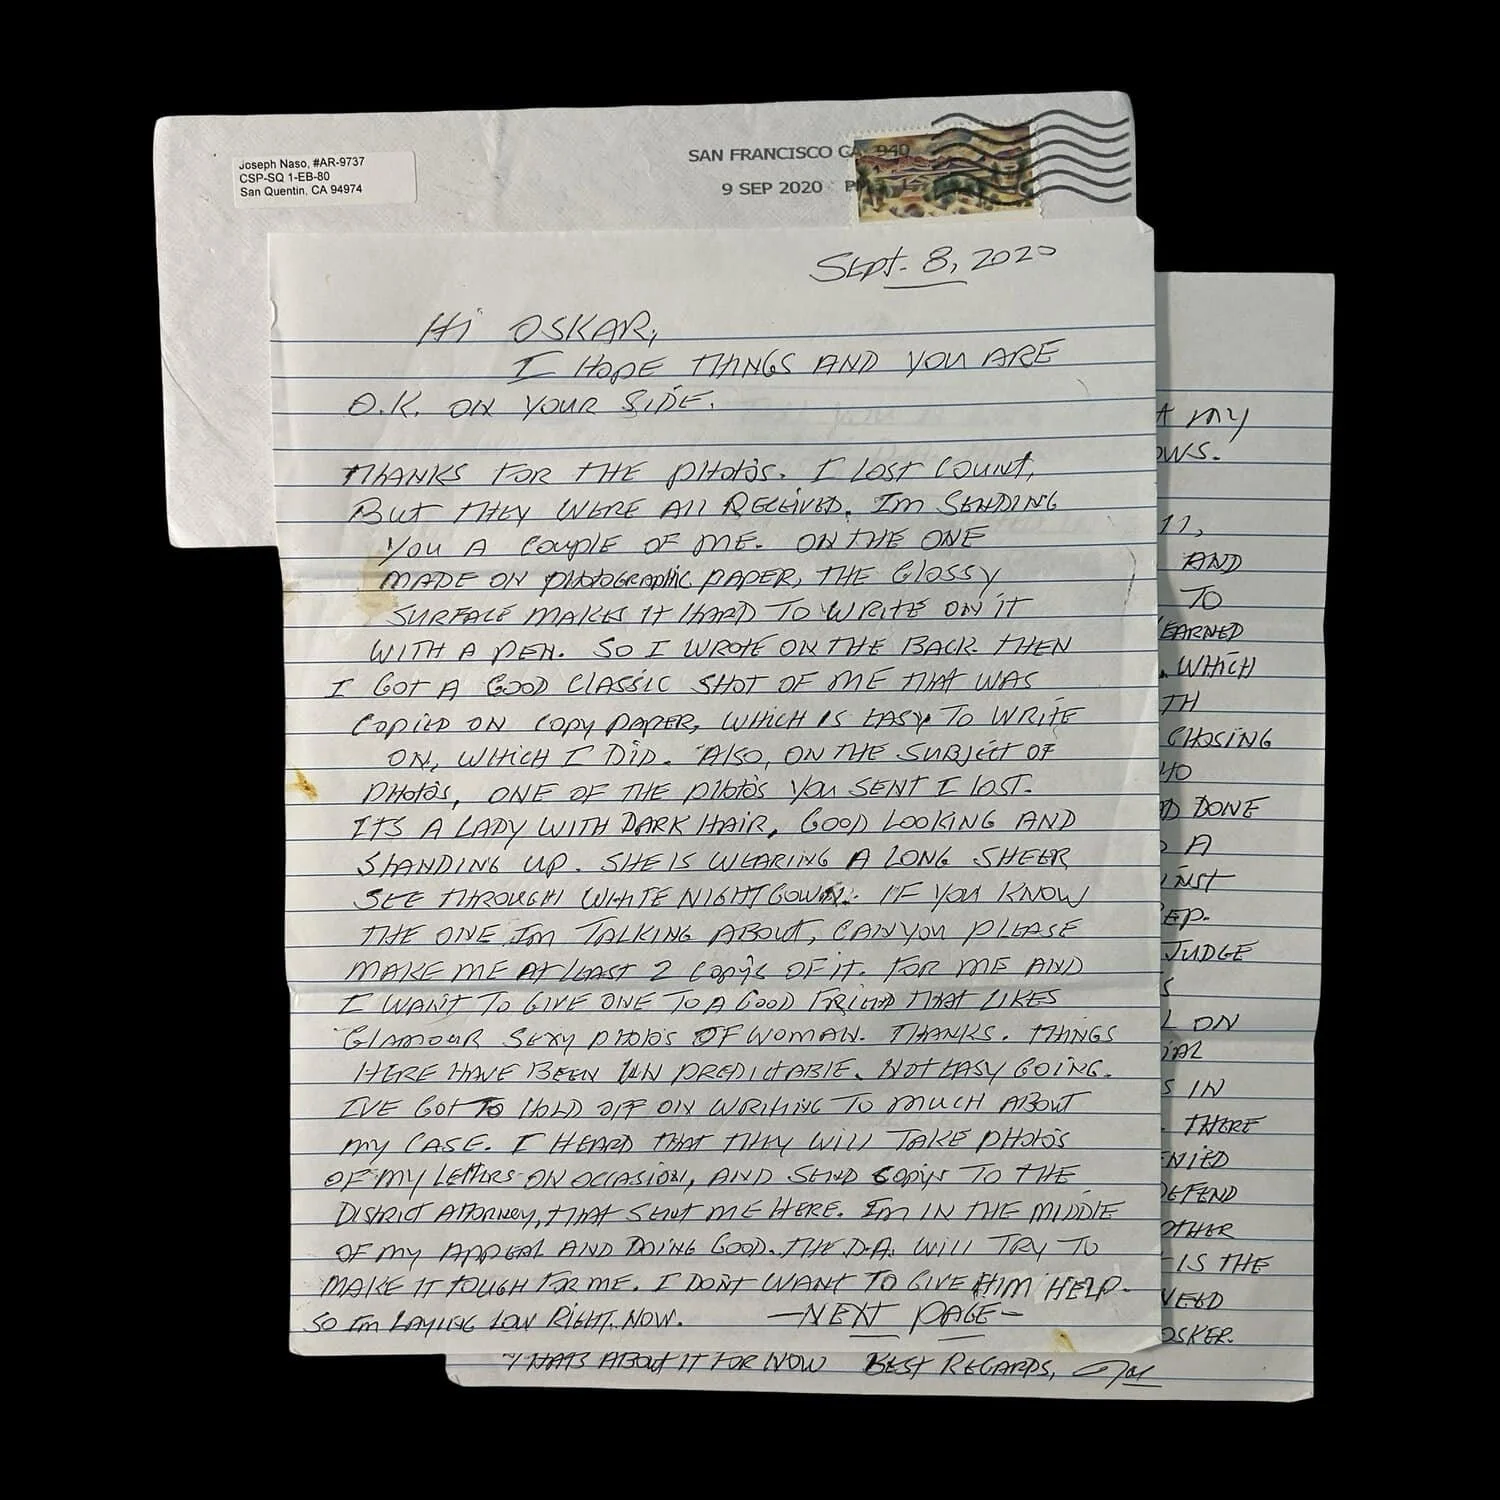 Joseph Naso, #AR-9737
CSP-SQ 1-EB-80
San Quentin, CA 94974
SAN FRANCISCO CA 940
9 SEP 2020
SEPT. 8, 2020
HI OSKAR,
I HOPE THINGS AND YOU ARE
O.K. ON YOUR SIDE.
THANKS FOR THE PHOTOS. I LOST COUNT,
BUT THEY WERE All RECEIVED. I'm SENDING
YOU A COUPLE OF ME. ON THE ONE
MADE ON PHOTOGRAPHIC PAPER, THE GLOSSY
SURFACE MAKES IT HARD TO WRITE ON IT
WITH A PEN. SO I WROTE ON THE BACK. THEN
I GOT A GOOD CLASSIC SHOT OF ME THAT WAS
COPIED ON COPY PAPER, WHICH IS EASY TO WRITE
ON, WHICH I DID. ALSO, ON THE SUBJECT OF
PHOTOS, ONE OF THE PHOTOS YOU SENT I LOST.
ITS A LADY WITH DARK HAIR, GOOD LOOKING AND
STANDING UP. SHE IS WEARING A LONG SHEER
SEE THROUGH WHITE NIGHTGOWN. IF YOU KNOW
THE ONE I'm TALKING ABOUT, CAN YOU PLEASE
MAKE ME AT LEAST 2 COPYS OF IT. FOR ME AND
I WANT TO GIVE ONE TO A GOOD FRIEND THAT LIKES
GLAMOUR SEXY PHOTOS OF WOMAN. THANKS. THINGS
HERE HAVE BEEN UN PREDICTABLE. NOT EASY GOING.
I'VE GOT TO HOLD OFF ON WRITING TO MUCH ABOUT
MY CASE. I HEARD THAT THEY WILL TAKE PHOTOS
OF MY LETTERS ON OCCASION, AND SEND COPYS TO THE
DISTRICT ATTORNEY, THAT SENT ME HERE. I'm IN THE MIDDLE
OF MY APPEAL AND DOING GOOD. THE D.A. WILL TRY TO
MAKE IT TOUGH FOR ME. I DON'T WANT TO GIVE HIM HELP.
SO I'm LAYING LOW RIGHT NOW. —NEXT PAGE—
MY
OWS.
11,
AND
TO
EARNED
. WHICH
TH
CHOSING
HO
DONE
A
INST
EP.
JUDGE
S
L ON
IAL
S IN
. THERE
ENIED
DEFEND
OTHER
IS THE
NEED
OSKER.
THATS ABOUT IT FOR NOW BEST REGARDS,